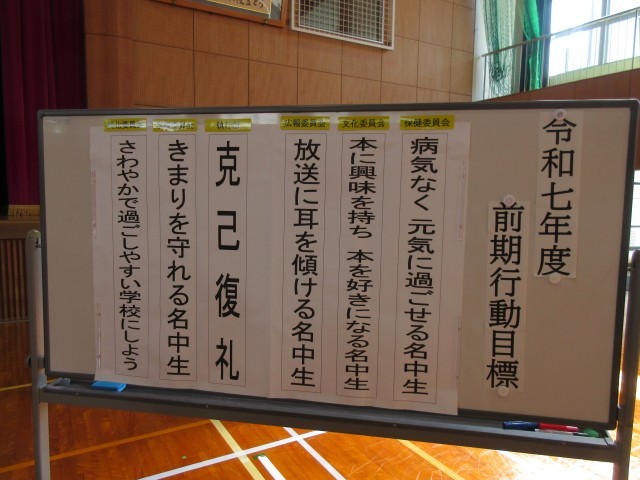 令和七年度
前期行動目標
保健委員会
病気なく元気に過ごせる名中生
文化委員会
本に興味を持ち 本を好きになる名中生
広報委員会
放送に耳を傾ける名中生
執行部
克己復礼
きまりを守れる名中生
さわやかで過ごしやすい学校にしよう